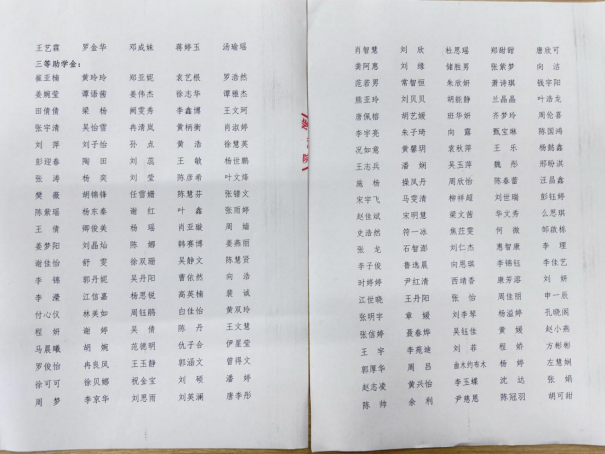 王艺霖 罗金华 邓成妹 蒋婷玉 汤瑜瑶
三等助学金：
崔亚楠 黄玲玲 郑亚妮 袁艺根 罗浩然
姜婉莹 谭语茜 姜伟杰 徐志华 谭雅杰
田倩倩 梁杨 阚雯秀 李鑫博 王文珂
张宇清 吴怡雪 冉清岚 黄炳衡 肖淑婷
刘萍 刘子怡 孙点 黄浩 徐慧英
彭迎春 陶田 刘蕊 王敏 杨世鹏
张涛 杨奕 刘莹 陈彦希 叶文烽
樊薇 胡锦锋 任雪姗 陈慧芬 张锴文
陈紫瑶 杨东泰 谢红 叶鑫 张雨婷
王倩 卿俊美 杨瑶 肖亚璇 周婻
姜梦阳 刘晶灿 陈娜 韩赛博 姜燕丽
谢佳怡 舒雯 徐双珊 吴静文 陈慧贤
李锦 郭丹妮 吴丹阳 曹依然 向浩
李滢 江信嘉 杨思锐 高英楠 裴诚
付心仪 林美如 周钰鹃 白佳怡 黄双玲
程妍 谢婷 吴倩 陈丹 王文慧
马晨曦 胡婉 范德明 仇子合 伊星莹
罗俊怡 冉良凤 王玉静 郭涵文 曾得文
徐可可 徐贝娜 祝金宝 刘硕 潘婷
周梦 李京华 刘思雨 刘美澜 唐李彤
肖智慧 刘欣 杜思瑶 郑甜甜 唐欣可
黄阿惠 刘缘 储胜男 张紫梦 向洁
范若男 常智恒 朱欣妍 萧诗琪 钱宇阳
熊亚玲 刘贝贝 胡能静 兰晶晶 叶浩龙
唐佩榕 胡艺媛 班华妍 齐梦玲 周伦喜
李宇亮 朱子琦 向露 甄宝琳 陈国鸿
况如意 黄馨玥 袁秋萍 王乐 杨懿鑫
王志兵 潘娴 吴玉萍 魏彤 邢盼淇
施杨 操凤丹 周欣怡 陈春蕾 汪昌鑫
宋宇飞 马雯清 柳祥超 刘世瑞 彭钰婷
赵佳斌 宋明慧 梁文茜 华文秀 么思琪
史浩然 符一冰 焦茳雯 何微 邹啟栋
张龙 石智澎 刘仁杰 惠智康 李理
李子俊 鲁逸晨 向恩琪 李锦钰 李佳艺
时婷婷 尹红清 西靖香 康芳溶 刘妍
江世晓 王丹阳 张怡 周佳丽 申一辰
张明宇 章媛 刘李琴 杨溢婷 孔晓阅
张信婷 聂春烨 吴钰佳 黄媛 赵小燕
王宇 李苑迪 刘菲 程娇 方彬彬
郭厚华 周吕 曲木约布木 杨婷 左慧娴
赵志凌 黄兴怡 李玉蝶 沈达 张娟
陈帅 余利 尹慈恩 陈冠羽 胡可甜